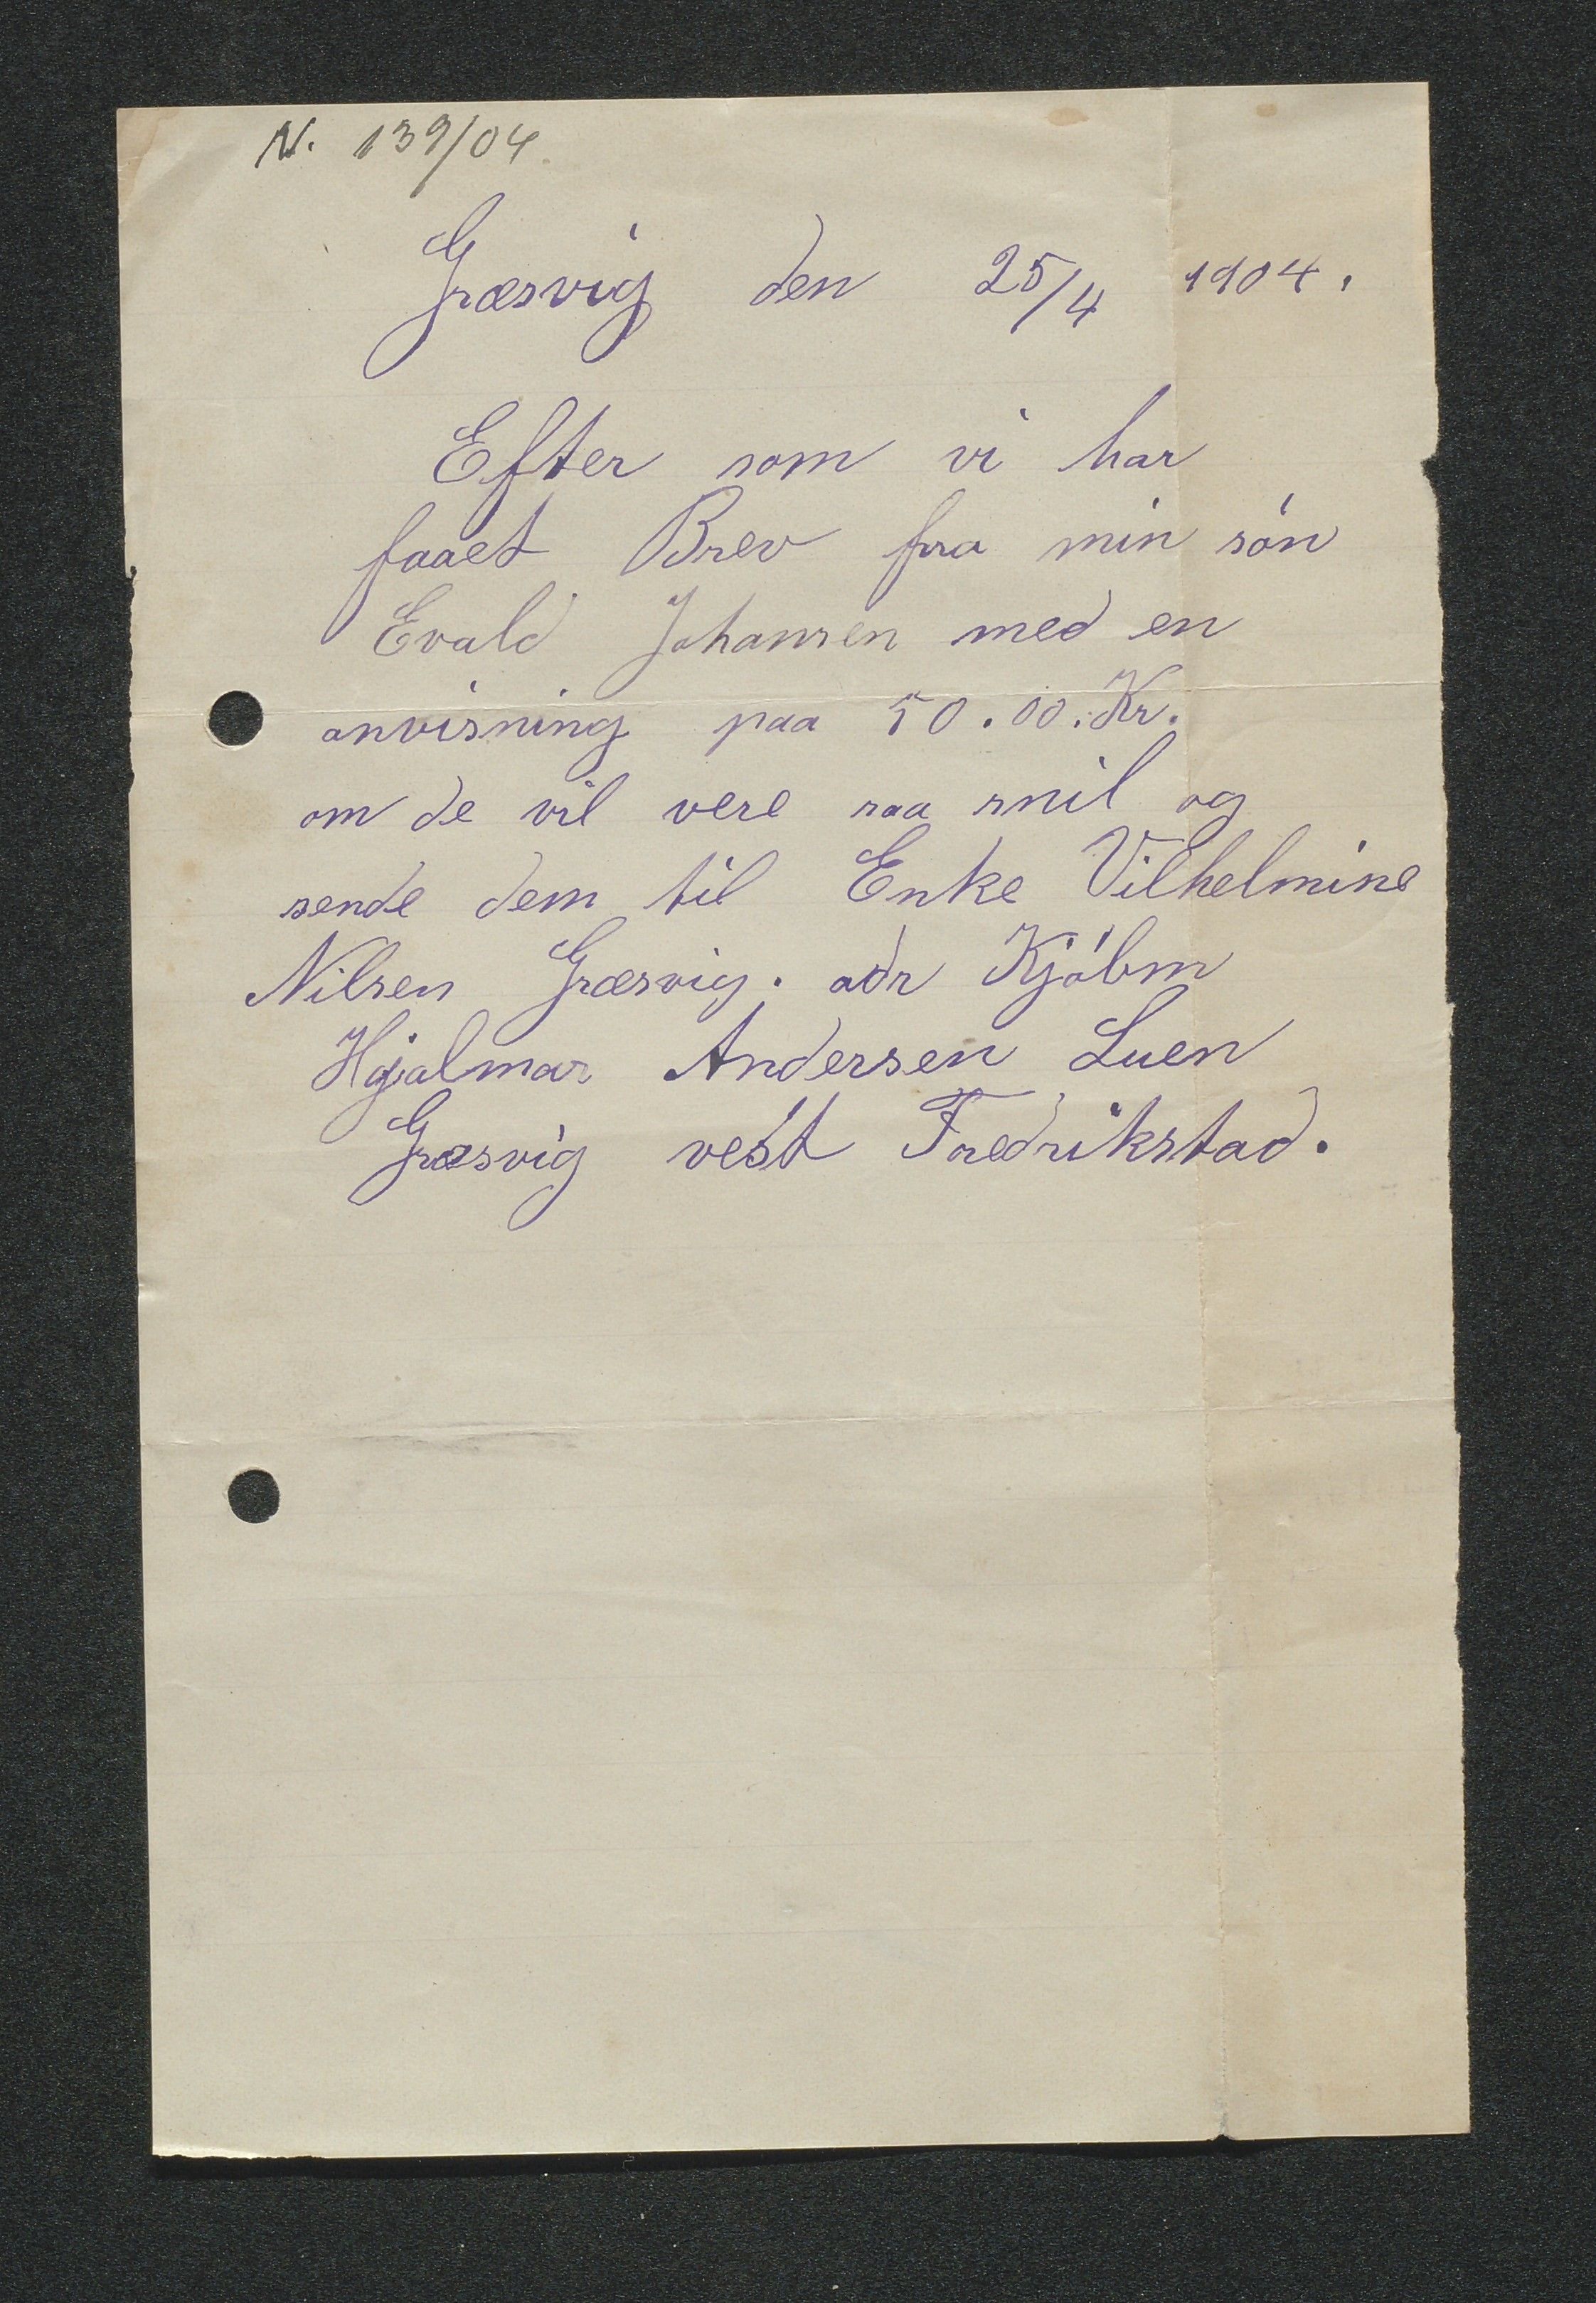 N. 139/04.
Græsvig den 25/4 1904.
Efter som vi har
faaet Brev fra min søn
Evald Johansen med en
anvisning paa 50.00.Kr.
om de vil vere saa snil og
sende dem til Enke Vilhelmine
Nilsen Græsvig. adr Kjøbm
Hjalmar Andersen Luen
Græsvig vest Fredrikstad.